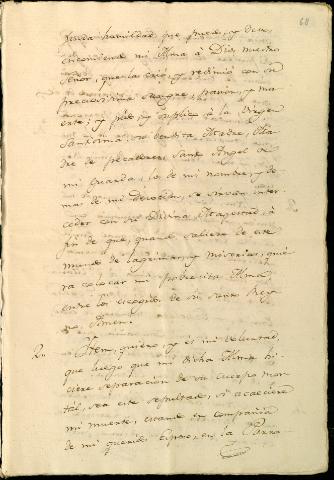 60
humildad que puedo, y devo,
encomiendo mi Alma à Dios nuestro
Señor, que la crió, y redimió con su
preciosisima sangre, pasion, y mu-
erte; y pido, y suplico à la Virgen
Santisima, su bendita Madre, Ma-
dre de pecadores, Santo Angel de
mi Guarda, lo de mi nombre, y de-
mas de mi devocion, se sirvan inter-
ceder con su Divina Magestad, à
fin de que, quando saliere de este
mundo de lagrimas, y miserias, quie-
ra colocar mi pobrecita Alma
entre los escogidos de su santo Rey-
no. Amen.
2. Item, quiero, y es mi voluntad,
que luego que mi dicha Alma hi-
ciere separacion de su cuerpo mor-
tal, sea este sepultado, si acaeciere
mi muerte, estando en compañia
de mi querido Esposo, en la Parro-